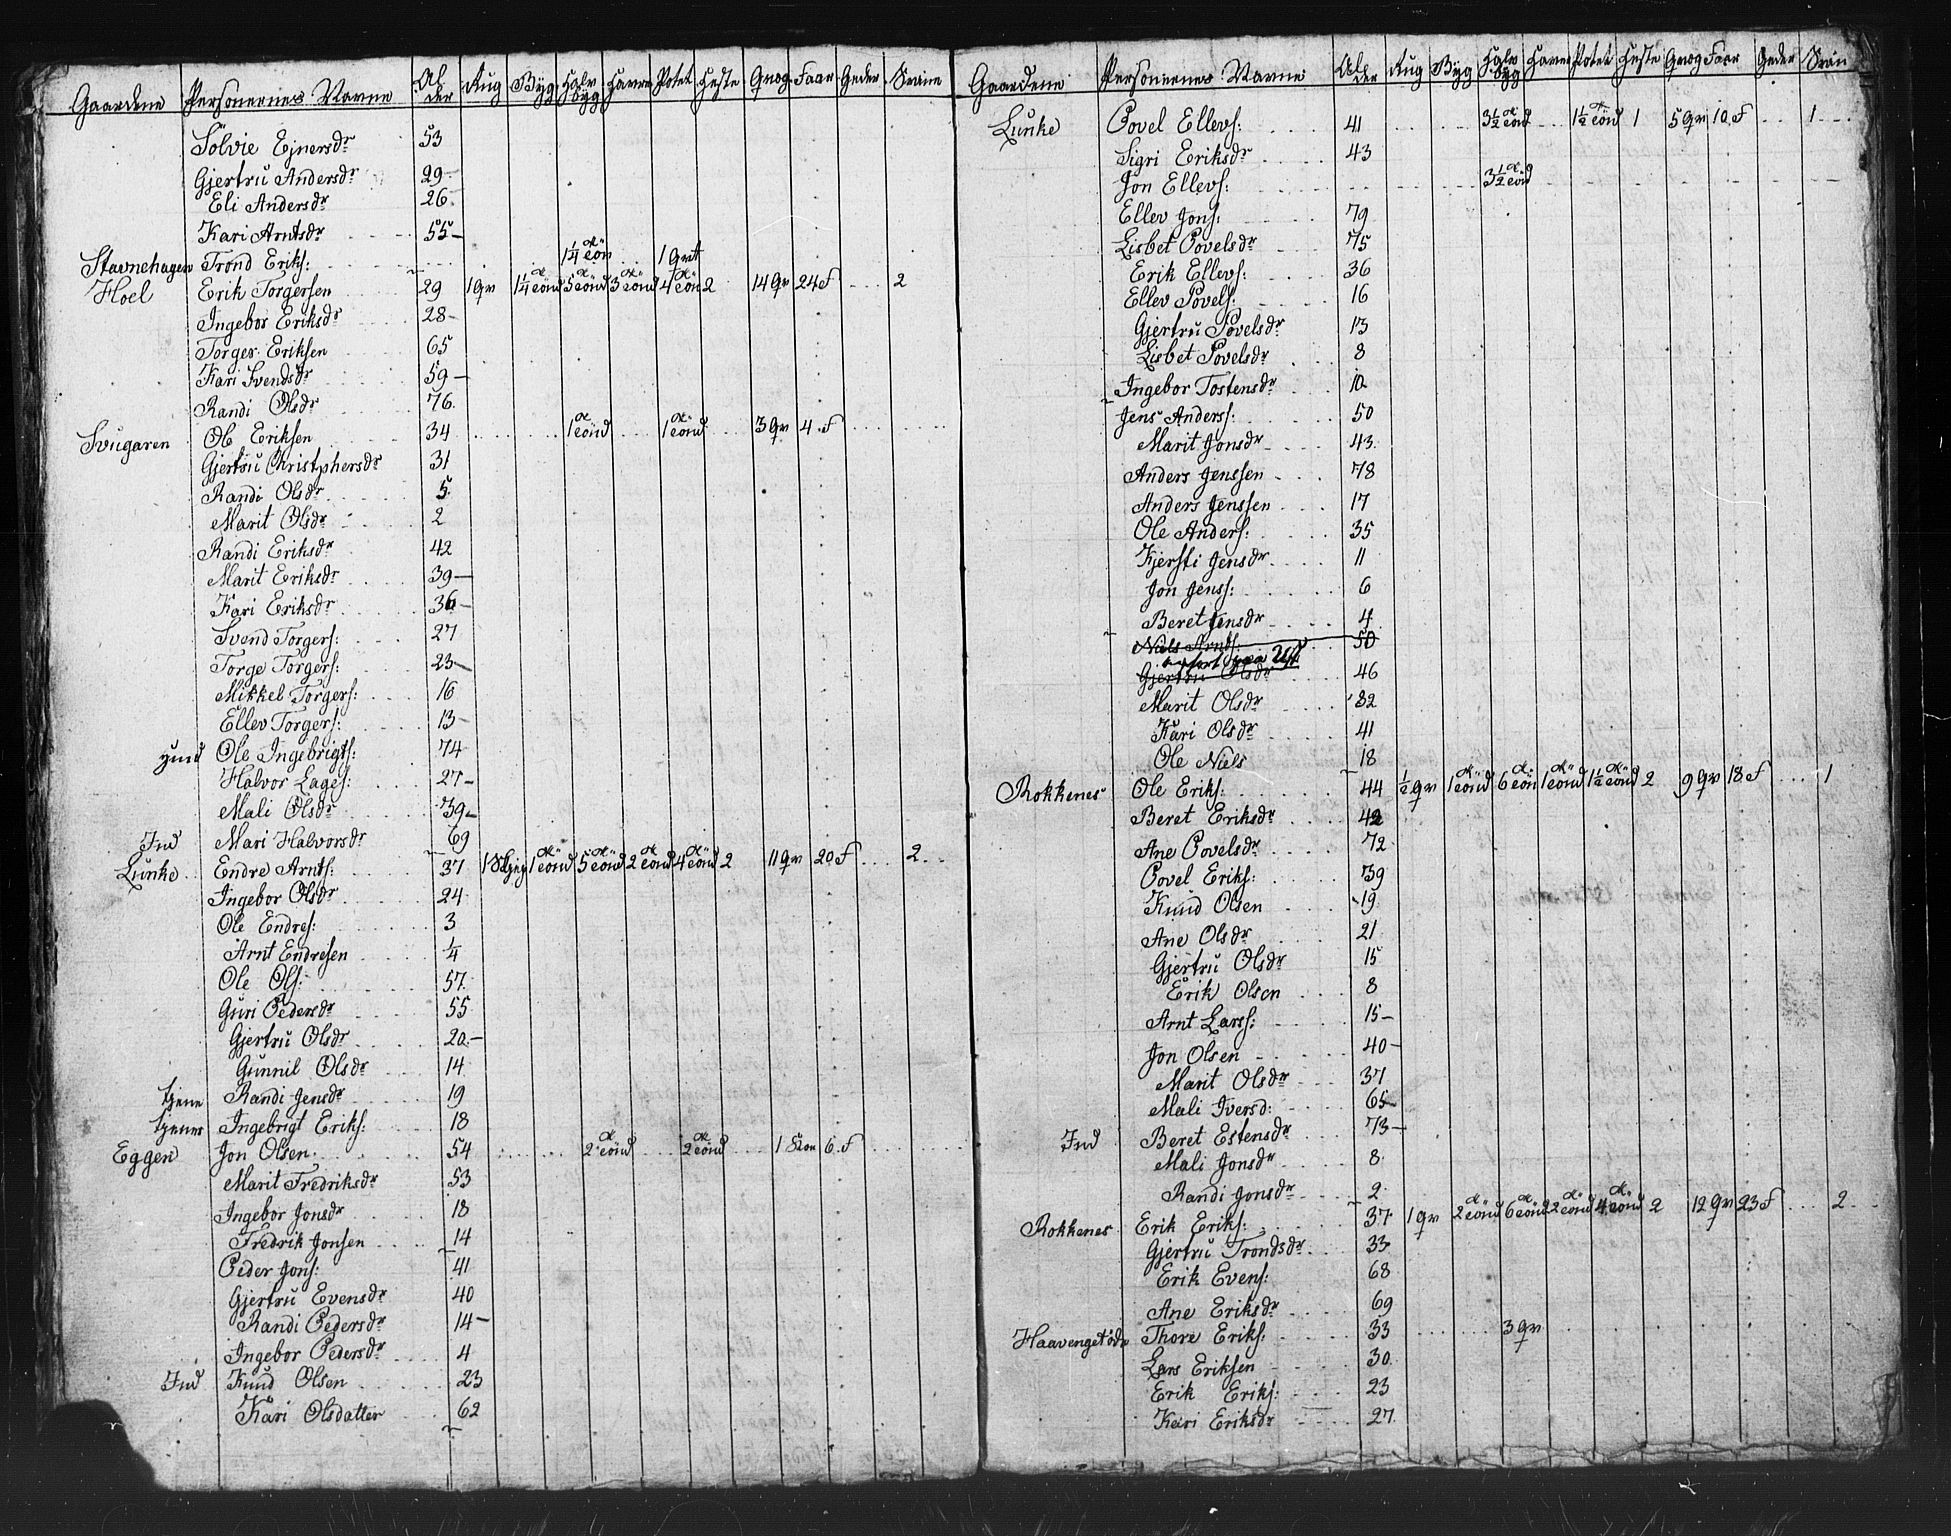 Gaardene Personernes Navne Alder Rug Byg Halv byg Havre Potet Heste Qvæg Faar Geder Sviine
Sölvie Ejnersdr 53
Gjertru Andersdr 29
Eli Andersdr 26
Kari Arntsdr 55
Stavnehagen Trond Eriks: 1¼ Tönd 1 Qvt
Hoel Erik Torgersen 29 1 Qv 1¼ Tönd 5 Tönd 3 Tönd 4 Tön 2 14 Qv 24 F 2
Ingebor Eriksdr 28
Torger Eriksen 65
Kari Svendsdr 59
Randi Olsdr 76
Svugaren Ole Eriksen 34 1 Tönd 1 Tönd 3 Qv 4 F
Gjertru Christphersdr 31
Randi Olsdr 5
Marit Olsdr 2
Randi Eriksdr 42
Marit Eriksdr 39
Kari Eriksdr 36
Svend Torgers: 27
Torge Torgers: 23
Mikkel Torgers: 16
Ellev Torgers: 13
Ind Ole Ingebrigts: 74
Halvor Lages: 27
Mali Olsdr 39
Ind Mari Halvorsdr 69
Lunke Endre Arnts: 37 1 1 Tönd 5 Tönd 2 Tönd 4 Tönd 2 11 Qv 20 F 2
Ingebor Olsdr 24
Ole Endres: 3
Arnt Endresen ¼
Ole Ols: 57
Guri Pedersdr 55
Gjertru Olsdr 20
Gunnil Olsdr 14
tjene Randi Jensdr 19
tjener Ingebrigt Eriks: 18
Eggen Jon Olsen 54 2 Tönd 2 Tönd 1 Koe 6 F
Marit Fredriksdr 53
Ingebor Jonsdr 18
Fredrik Jonsen 14
Peder Jons: 41
Gjertru Evensdr 40
Randi Pedersdr 14
Ingebor Pedersdr 4
Ind Knud Olsen 23
Kari Olsdatter 62
Gaardene Personernes Navne Alder Rug Byg Halv byg Havre Potet Heste Qvæg Faar Geder Sviin
Lunke Povel Ellevs: 41 3½ Tönd 1½ Tönd 1 5 Qv 10 F 1
Sigri Eriksdr 43
Jon Ellevs: 3½ Tönd
Ellev Jons: 79
Lisbet Povelsdr 75
Erik Ellevs: 36
Ellev Povels: 16
Gjertru Povelsdr 13
Lisbet Povelsdr 8
Ingebor Tostensdr 10
Jens Anderss: 50
Marit Jonsdr 43
Anders Jenssen 78
Anders Jenssen 17
Ole Anders: 35
Kjersti Jensdr 11
Jon Jenss: 6
Beret Jensdr 4
Niels Arnts: 50
Gjertru Olsdr 46
Marit Olsdr 82
Kari Olsdr 41
Ole Niels 18
Rokkenes Ole Eriks: 44 ½ Qv 1 Tönd 6 Tön 1 Tönd 1½ Tönd 2 9 Qv 18 F 1
Beret Eriksdr 42
Ane Povelsdr 72
Povel Eriks: 39
Knud Olsen 19
Ane Olsdr 21
Gjertru Olsdr 15
Erik Olsen 8
Arnt Larss: 15
Jon Olsen 40
Marit Olsdr 37
Mali Iversd: 65
Ind Beret Estensdr 73
Mali Jonsdr 8
Randi Jonsdr 2
Rokkenes Erik Eriks: 37 1 Qv 2 Tönd 6 Tönd 2 Tönd 4 Tönd 2 12 Qv 23 F 2
Gjertru Trondsdr 33
Erik Evens: 68
Ane Eriksdr 69
Haavengetödr Thore Eriks: 33 3 Qv
Lars Eriksen 30
Erik Eriks: 23
Kari Eriksdr 27